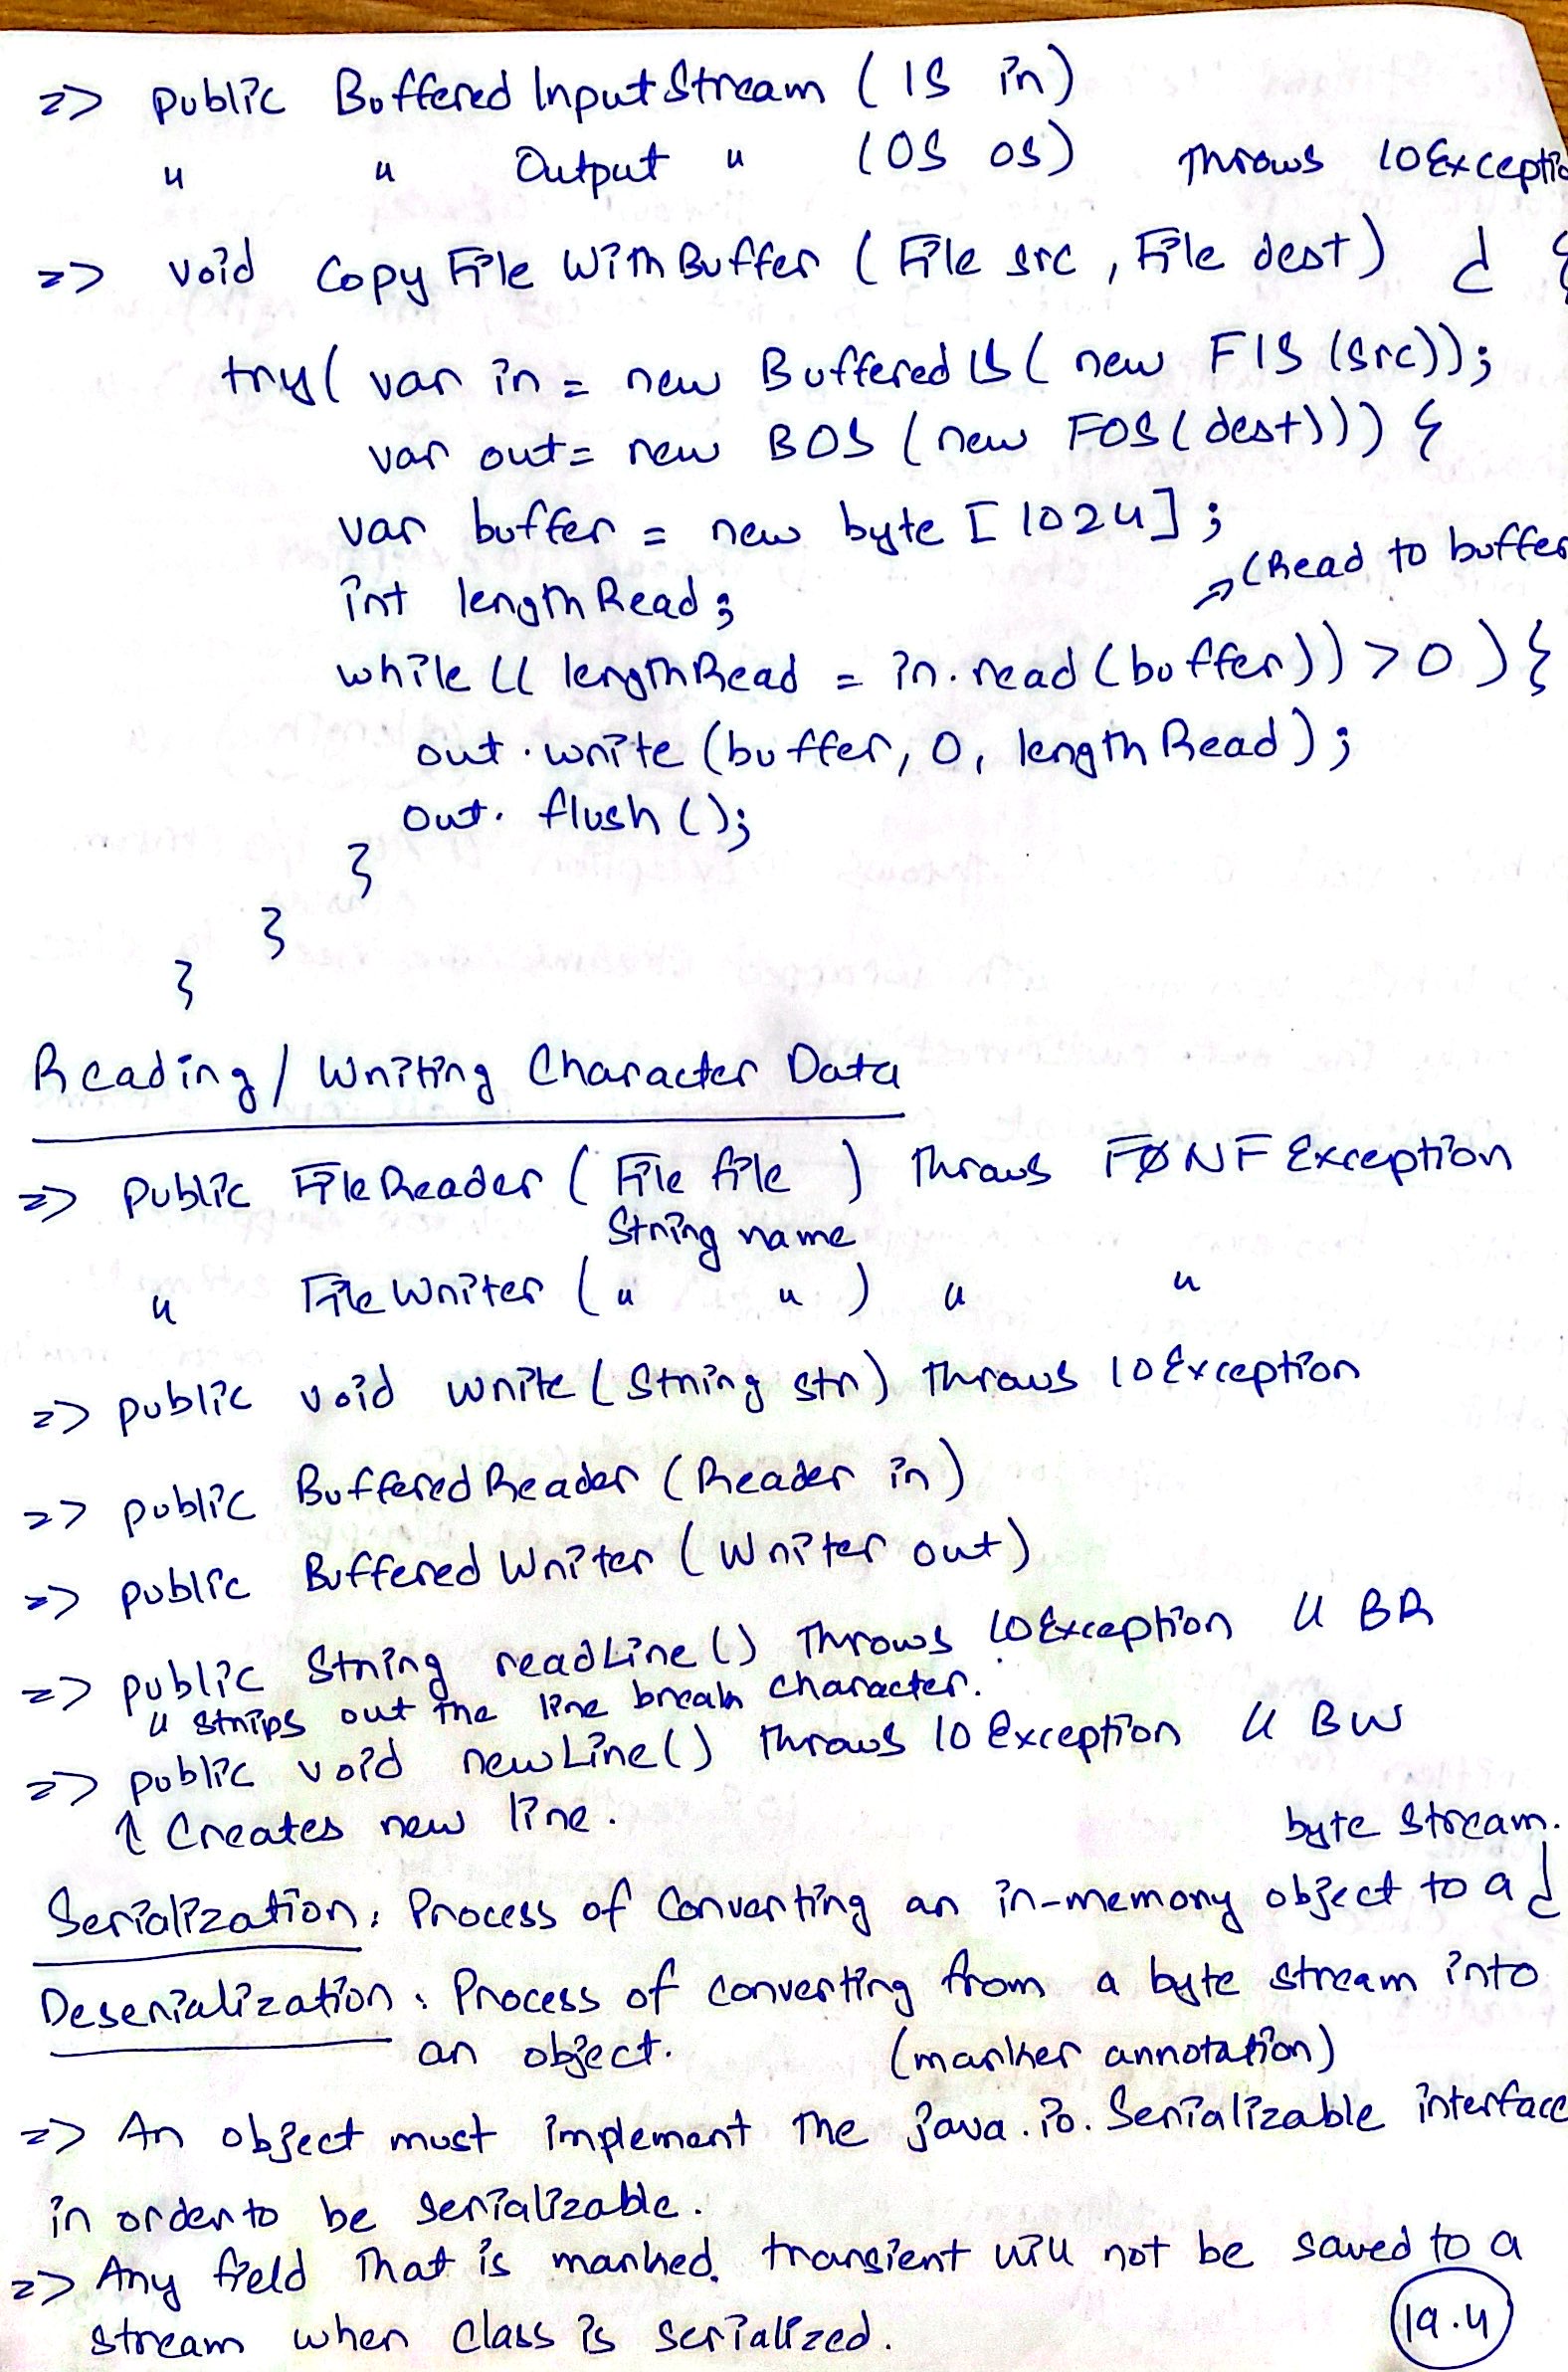 => public BufferedInputStream ( IS in)
" " Output " (OS os) throws IOExceptio
=> void copyFileWithBuffer ( File src , File dest) {
try( var in = new BufferedIS( new FIS (src));
var out = new BOS ( new FOS(dest))) {
var buffer = new byte [ 1024] ;
(Read to buffer
int lengthRead;
while (( lengthRead = in.read (buffer)) > 0 ) {
out.write (buffer, 0, lengthRead);
out. flush ();
}
}
}
Reading / Writing Character Data
=> Public FileReader ( File file ) throws FNF Exception
String name
" FileWriter ( " " ) " "
=> public void write ( String str) throws IOException
=> public BufferedReader (Reader in)
=> public BufferedWriter (Writer out)
=> public String readLine () throws IOException // BR
// strips out the line break character.
=> public void newLine() throws IO Exception // BW
↑ Creates new line.
byte stream.
Serialization: Process of converting an in-memory object to a
Deserialization: Process of converting from a byte stream into
an object. (marker annotation)
=> An object must implement the java.io.Serializable interface
in order to be serializable.
=> Any field that is marked transient will not be saved to a
stream when class is serialized.
19.4